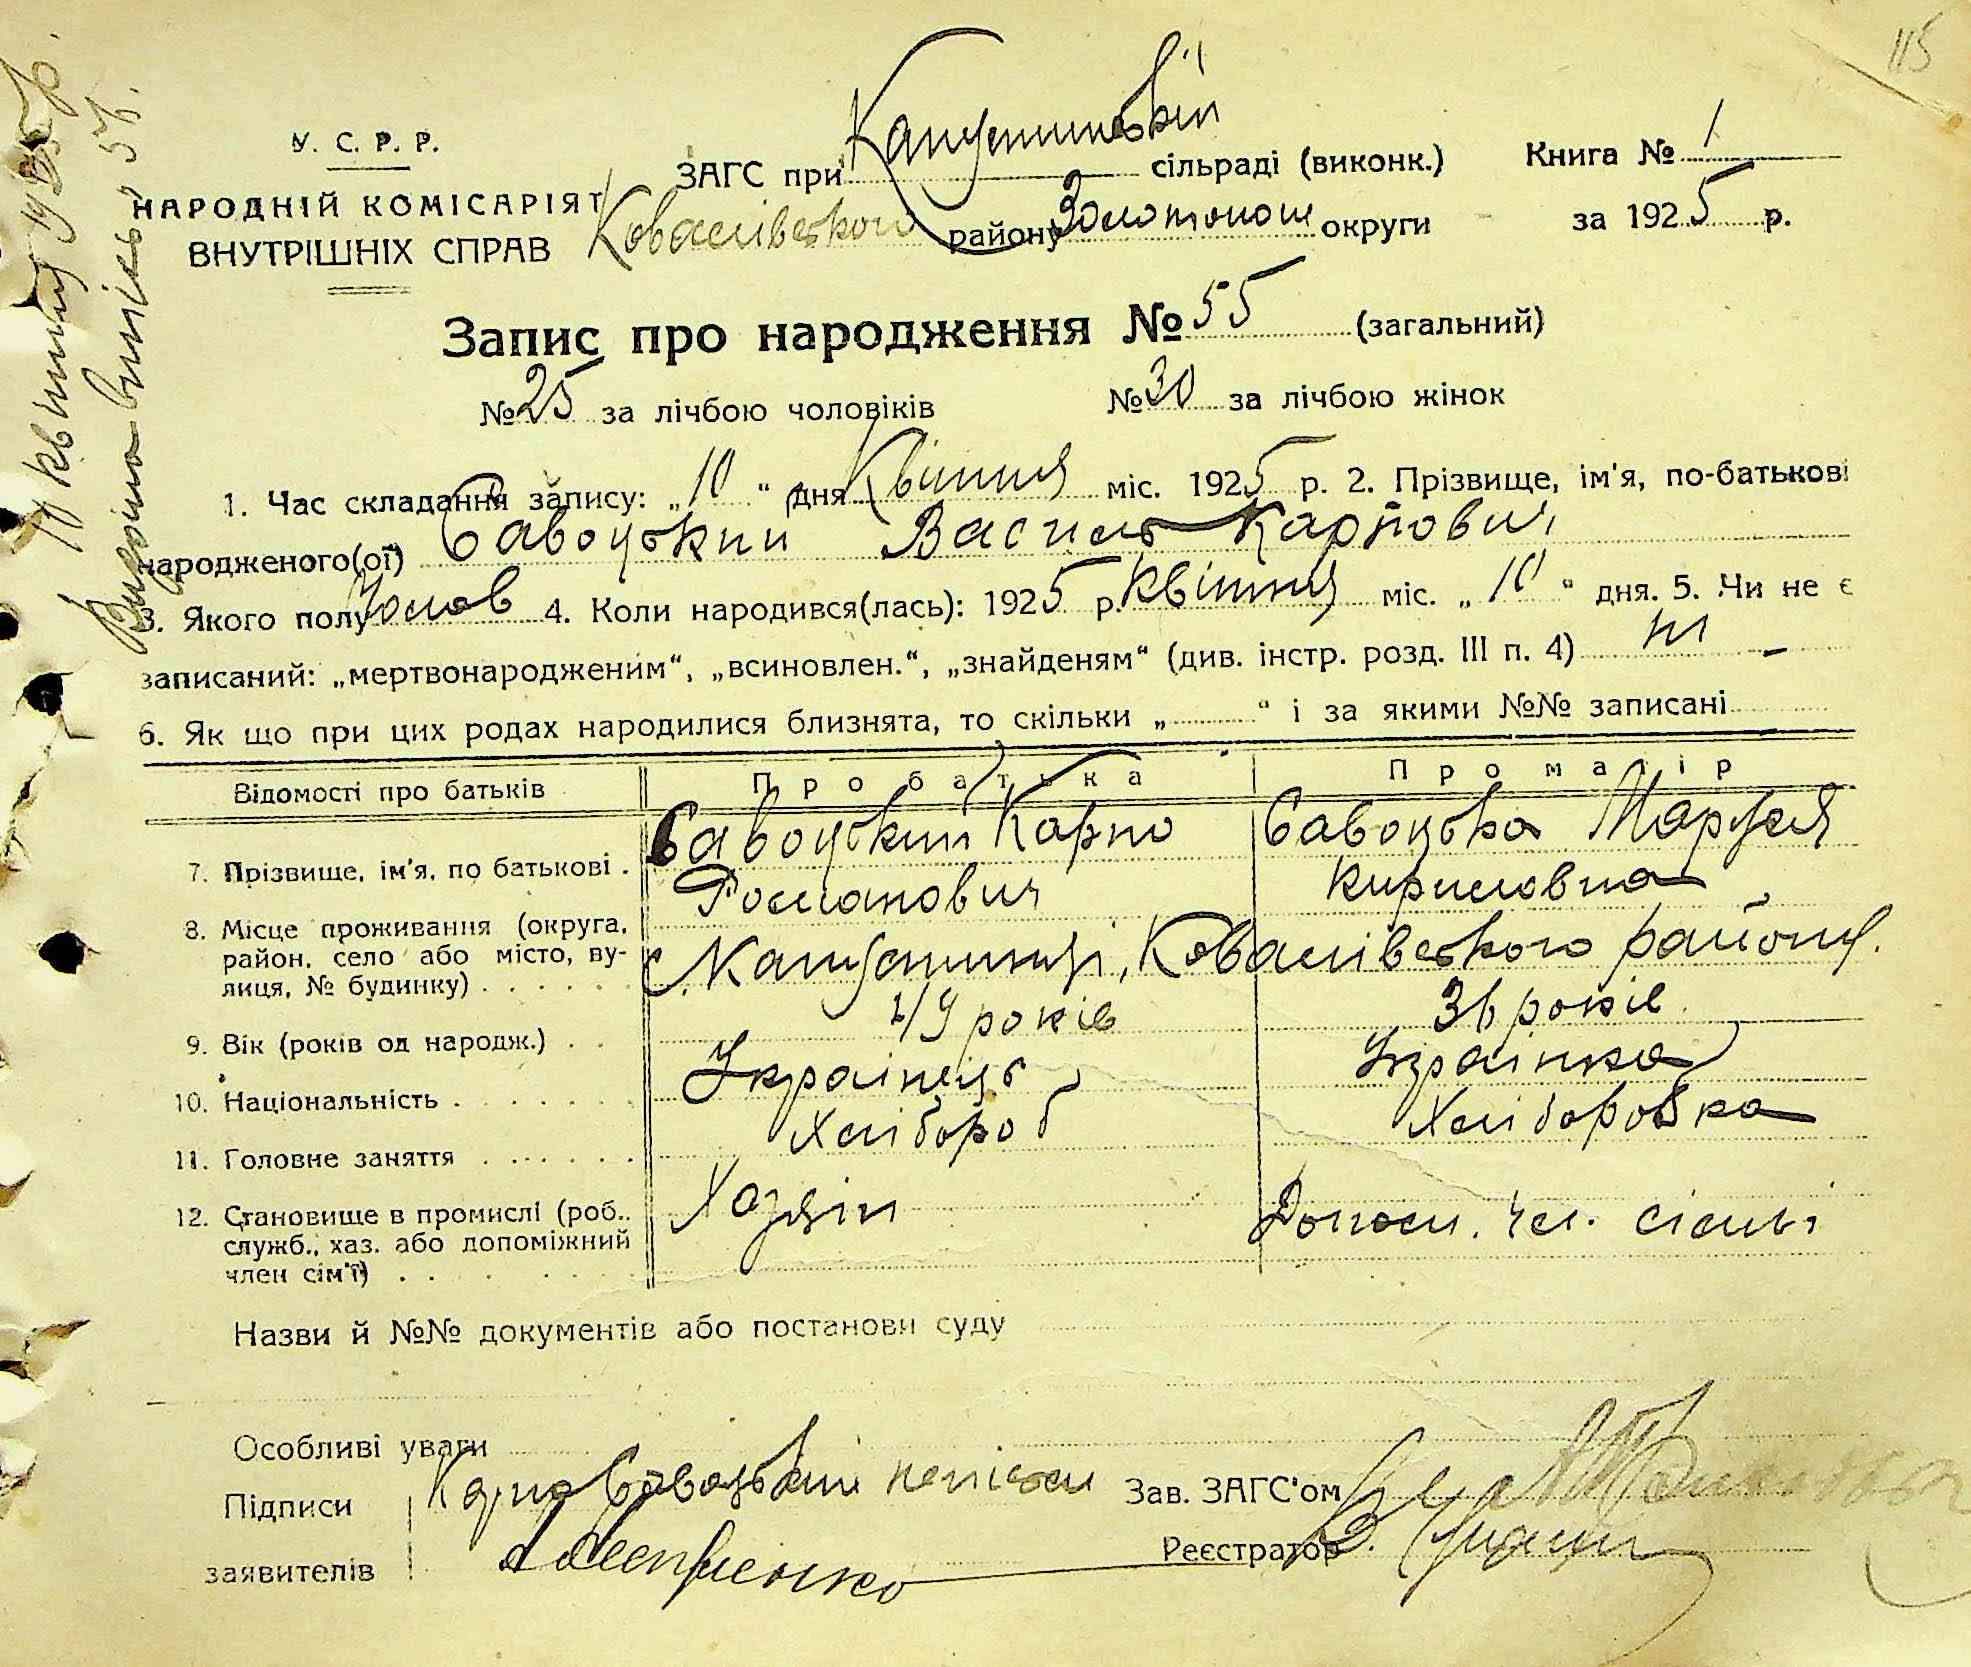 115
У. С. Р. Р.
НАРОДНІЙ КОМІСАРІЯТ
ВНУТРІШНІХ СПРАВ
ЗАГС при Капустинській сільраді (виконк.)
Ковалівського району Золотонош округи
Книга № 1
за 1925 р.
Запис про народження № 55 (загальний)
№ 25 за лічбою чоловіків № 30 за лічбою жінок
1. Час складання запису: „10“ дня Квітня міс. 1925 р. 2. Прізвище, ім'я, по-батькові
народженого(ої) Савоцький Василь Карпович
3. Якого полу Чолов 4. Коли народився(лась): 1925 р. Квітня міс. „10“ дня. 5. Чи не є
записаний: „мертвонародженим“, „всиновлен.“, „знайденям“ (див. інстр. розд. III п. 4) ні –
6. Як що при цих родах народилися близнята, то скільки „ “ і за якими №№ записані
Відомості про батьків Про батька Про матір
7. Прізвище, ім'я, по батькові . Савоцький Карпо Романович Савоцька Маруся Кириловна
8. Місце проживання (округа,
район, село або місто, ву-
лиця, № будинку) с. Капустинці, Ковалівського району.
9. Вік (років од народж.) 49 років 36 років
10. Національність Українець Українка
11. Головне заняття Хлібороб Хліборобка
12. Становище в промислі (роб.,
служб., хаз. або допоміжний
член сім'ї) Хазяїн Допом. чл. сімьі
Назви й №№ документів або постанови суду
Особливі уваги
Підписи Карпо Савоцький
заявителів
Зав. ЗАГС'ом
Реєстратор
10 квітня 1925 р.
Видано випись 5 б.